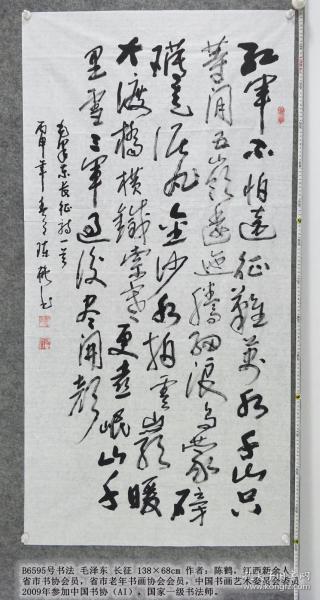 紅軍不怕遠征難萬水千山只
等闲五嶺逶迤腾細浪烏蒙磅
礴走泥丸金沙水拍雲崖暖
大渡橋横鐵索寒更喜岷山千
里雪三軍過後尽開颜
毛泽东长征诗一首
丙申年春月陈鹤书
B6595号书法 毛泽东 长征 138×68cm 作者:陈鹤,江西新余人,
省市书协会员,省市老年书画协会会员,中国书画艺术委员会委员
2009年参加中国书协(AI),国家一级书法师。